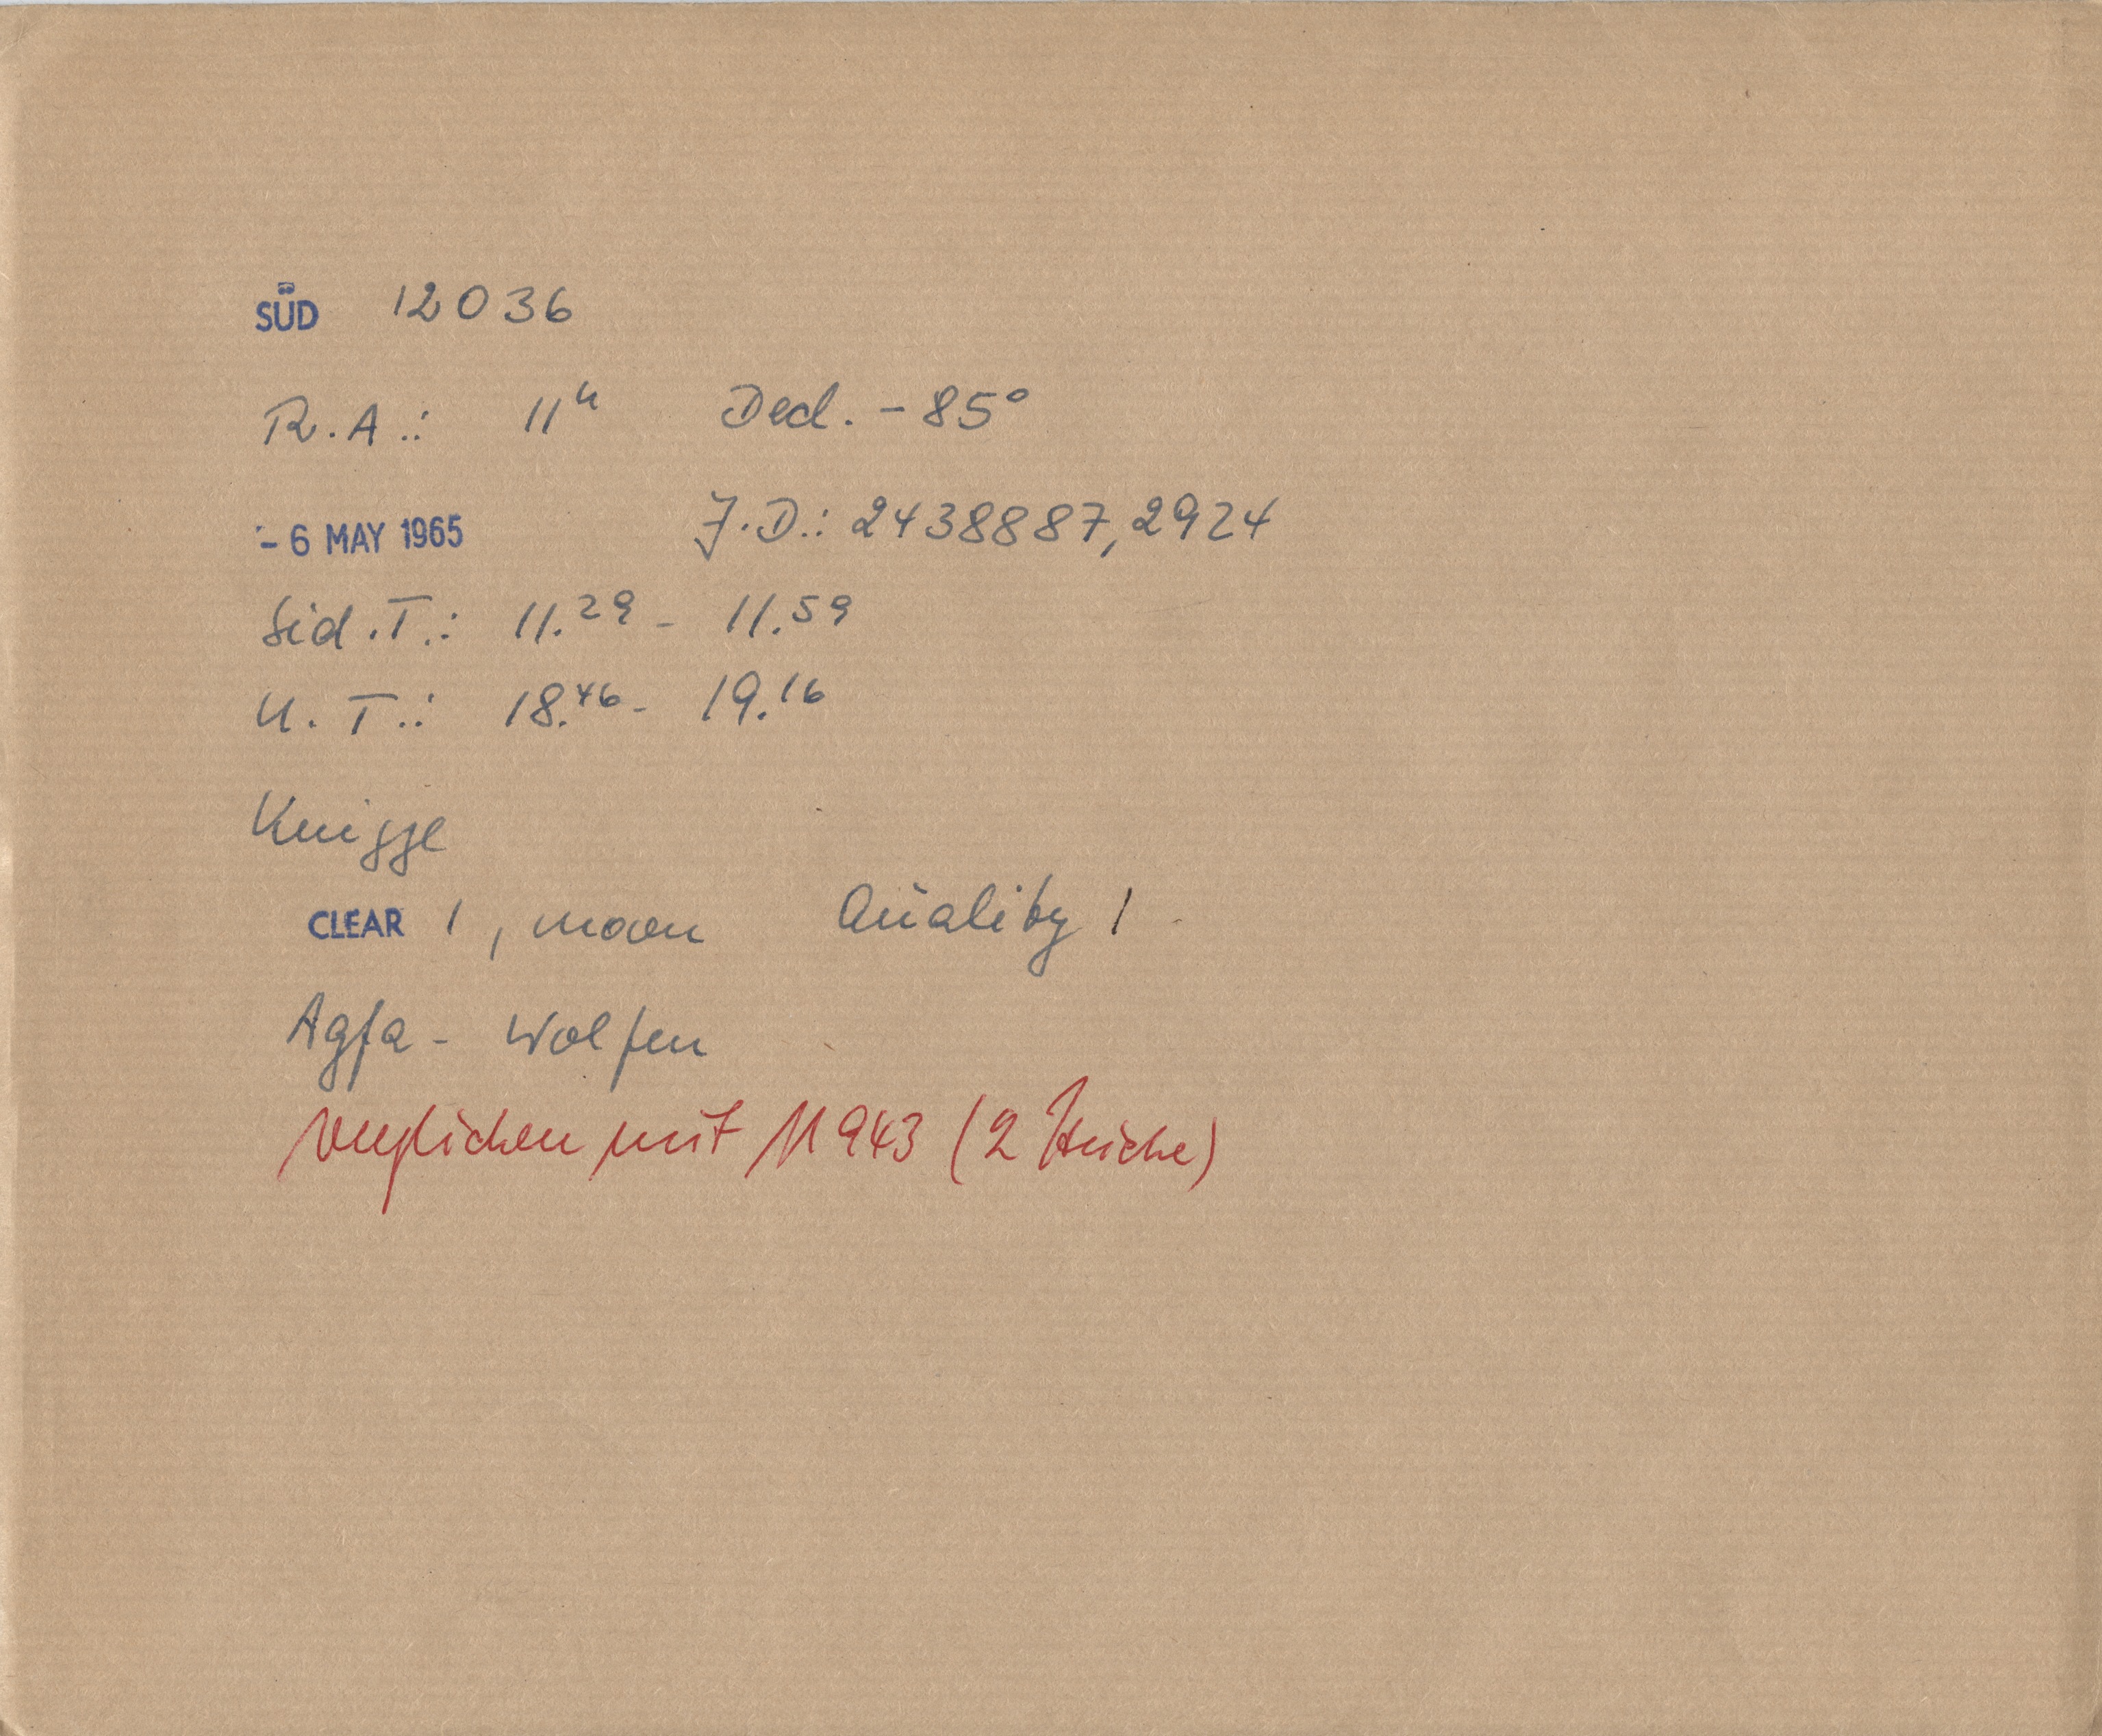 SÜD 12036
R.A.: 11ʰ Decl. -85°
- 6 MAY 1965 J.D.: 2438887,2924
Sid.T.: 11.²⁹ - 11.⁵⁹
U.T.: 18.⁴⁶ - 19.¹⁶
Knigge
CLEAR 1, moon Quality 1
Agfa - Wolfen
verglichen mit 11943 (2 Striche)